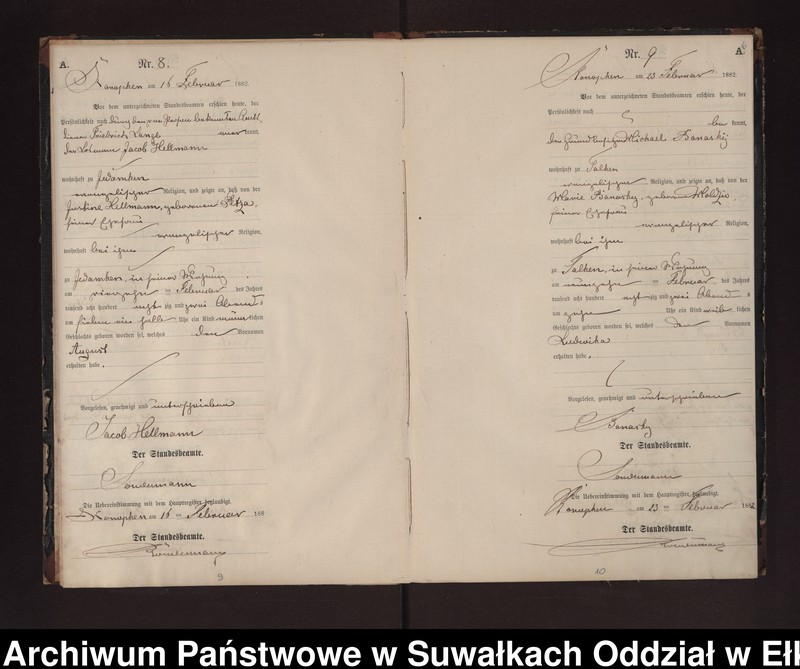 A.
Nr. 8.
Konopken am 16 Februar 1882.
Vor dem unterzeichneten Standesbeamten erschien heute, der
Persönlichkeit nach durch den
diener Friedrich kannt,
der Losmann Jacob Hellmann
wohnhaft zu Jedamken
evangelischer Religion, und zeigte an, daß von der
Justine Hellmann, geborenen
seiner Ehefrau
evangelischer Religion,
wohnhaft bei ihm
zu Jedamken, in seiner Wohnung
am vierzehn ten Februar des Jahres
tausend acht hundert acht zig und zwei Abends
um sieben ein halb Uhr ein Kind männlichen
Geschlechts geboren worden sei, welches den Vornamen
August
erhalten habe.
Vorgelesen, genehmigt und unterschrieben
Jacob Hellmann
Der Standesbeamte.
Sondermann
Die Uebereinstimmung mit dem Hauptregister beglaubigt.
Konopken am 16 ten Februar 188
Der Standesbeamte.
Sondermann
9
Nr. 9
A.
Konopken am 23 Februar 1882.
Vor dem unterzeichneten Standesbeamten erschien heute, der
Persönlichkeit nach
be kannt,
der Grundbesitzer Michael Banasky
wohnhaft zu Talken
evangelischer Religion, und zeigte an, daß von der
Marie Banasky, geborene
seiner Ehefrau
evangelischer Religion,
wohnhaft bei ihm
zu Talken, in seiner Wohnung
am neunzehn ten Februar des Jahres
tausend acht hundert acht zig und zwei Abend s
um zehn Uhr ein Kind weib lichen
Geschlechts geboren worden sei, welches den Vornamen
Ludwika
erhalten habe.
Vorgelesen, genehmigt und unterschrieben
Banasky
Der Standesbeamte.
Sondermann
Die Uebereinstimmung mit dem Hauptregister beglaubigt.
Konopken am 23 ten Februar 1882
Der Standesbeamte.
Sondermann
10
Archiwum Państwowe w Suwałkach Oddział w Eł